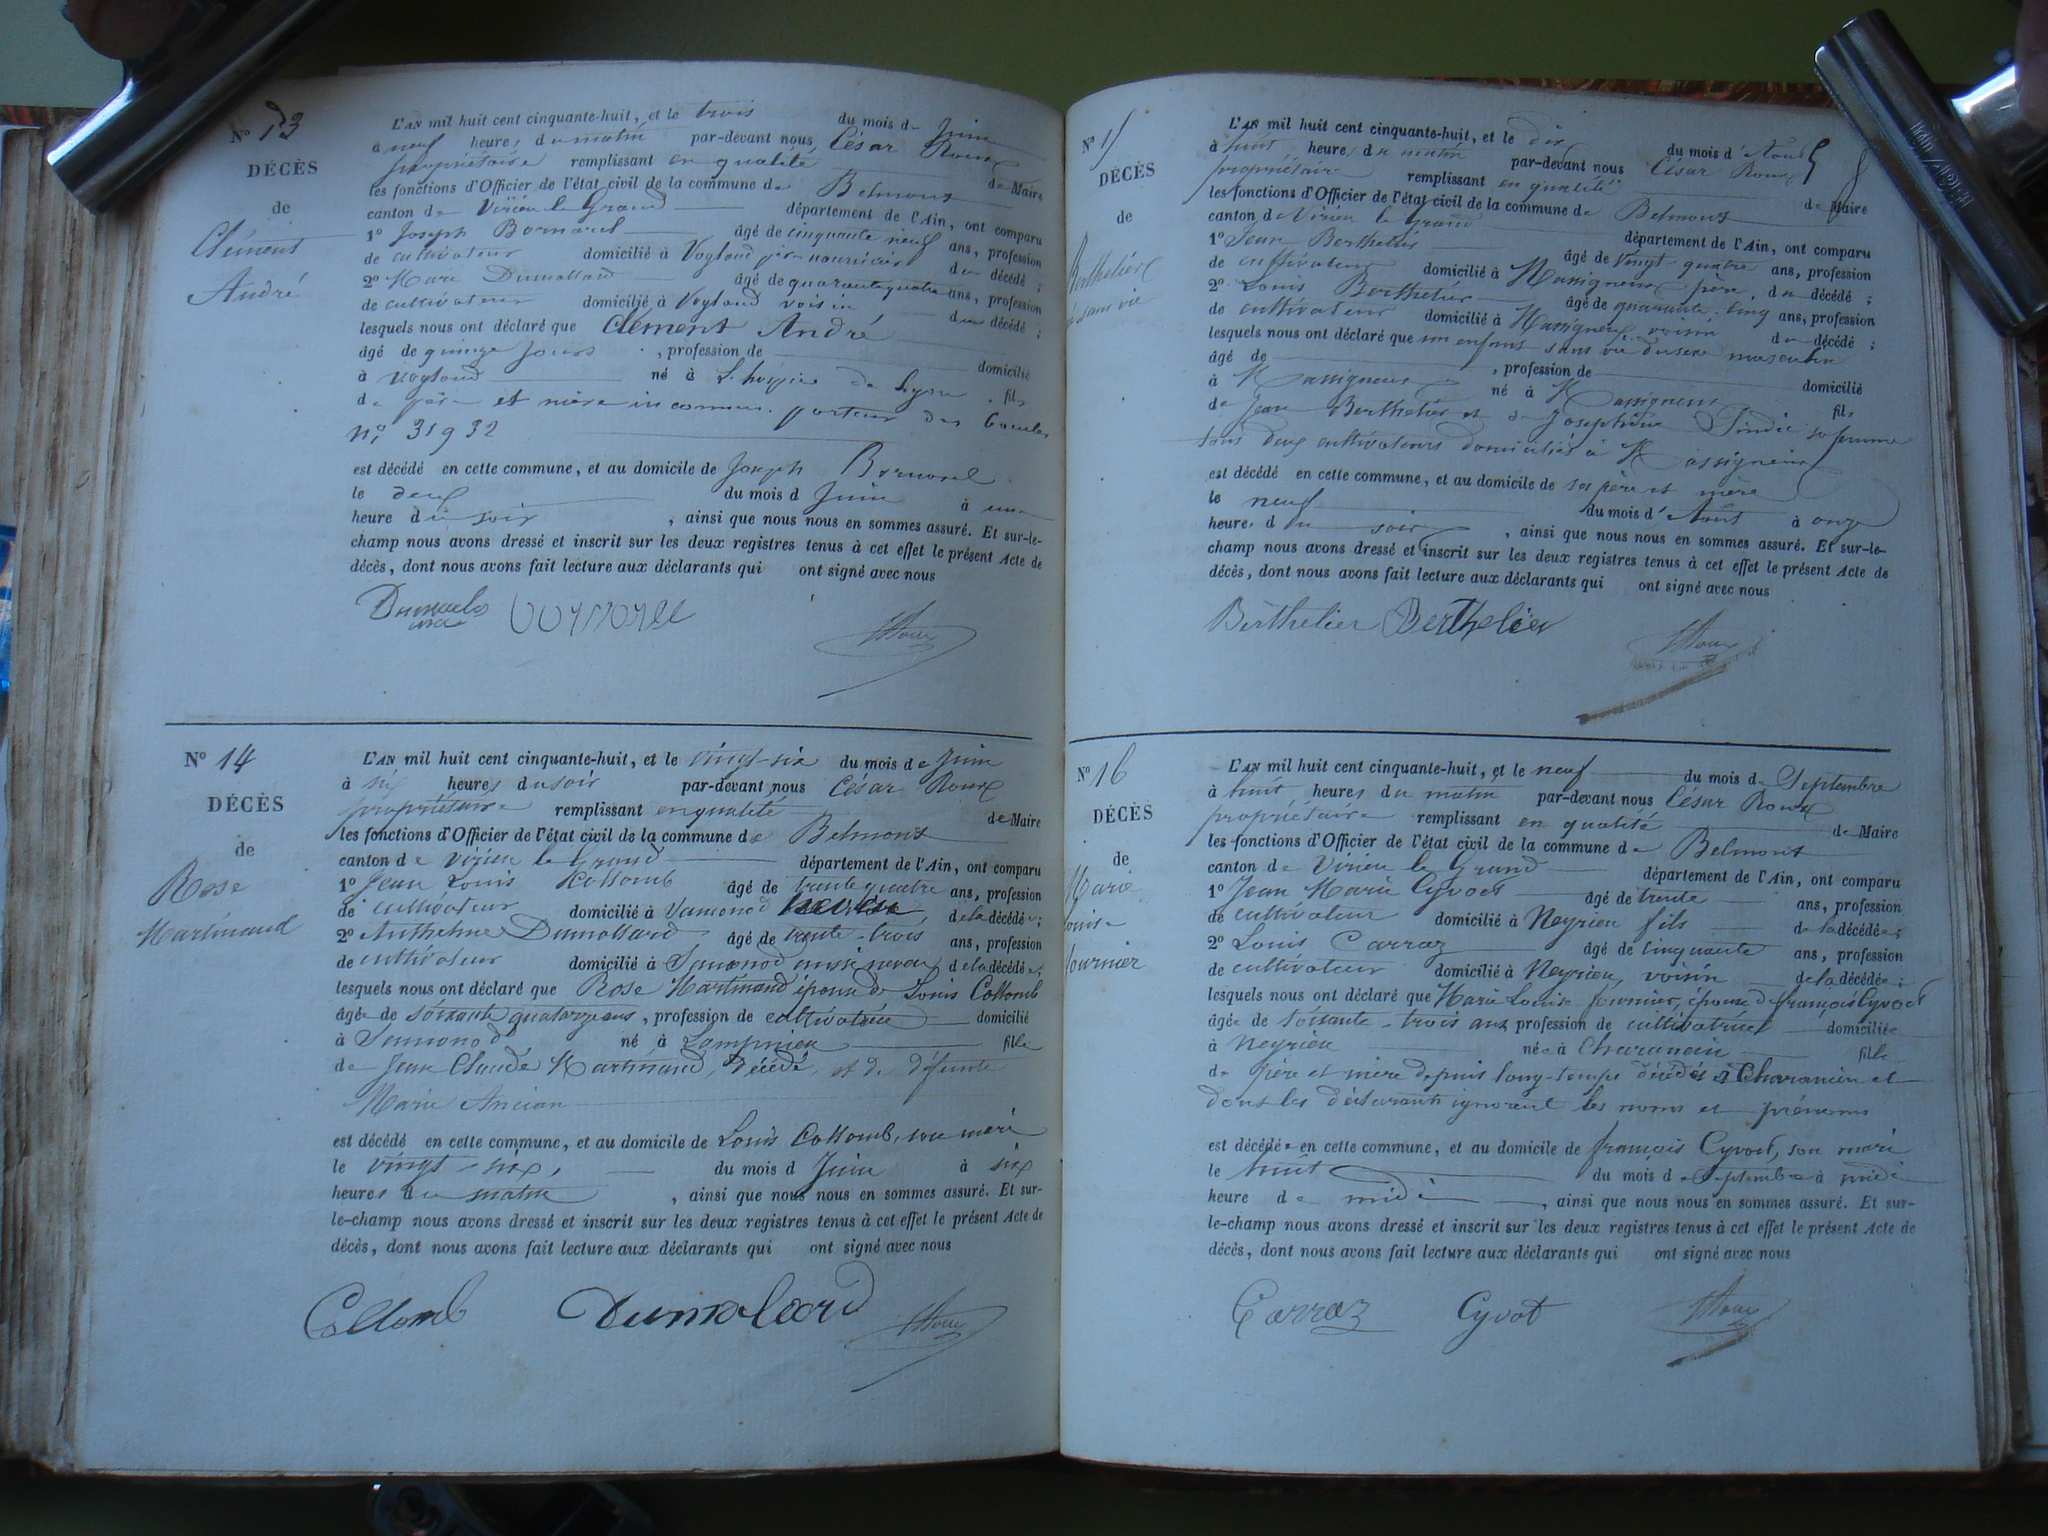 N° 13
DÉCÈS
de
Clément
André
L'AN mil huit cent cinquante-huit, et le trois du mois de Juin
à neuf heures du matin par-devant nous César Roux
propriétaire remplissant en qualité de Maire
les fonctions d'Officier de l'état civil de la commune de Belmont
canton de Virieu le Grand département de l'Ain, ont comparu
1° Joseph Bornarel âgé de cinquante neuf ans, profession
de cultivateur domicilié à Vogland père nourricier du décédé ;
2° Marie Dumollard âgé de quarante quatre ans, profession
de cultivateur domicilié à Vogland voisin du décédé ;
lesquels nous ont déclaré que Clément André
âgé de quinze jours , profession de domicilié
à Vogland né à L'hospice de Lyon fils
de père et mère inconnus. porteur des
N° 31932
est décédé en cette commune, et au domicile de Joseph Bornarel
le deux du mois d Juin à une
heure du soir , ainsi que nous nous en sommes assuré. Et sur-le-
champ nous avons dressé et inscrit sur les deux registres tenus à cet effet le présent Acte de
décès, dont nous avons fait lecture aux déclarants qui ont signé avec nous
bornarel Roux
N° 14
DÉCÈS
de
Rose
Martinand
L'AN mil huit cent cinquante-huit, et le vingt-six du mois de Juin
à six heures du soir par-devant nous César Roux
propriétaire remplissant en qualité de Maire
les fonctions d'Officier de l'état civil de la commune de Belmont
canton de Virieu le Grand département de l'Ain, ont comparu
1° Jean Louis Collomb âgé de trente quatre ans, profession
de cultivateur domicilié à Samonod neveu, de la décédée ;
2° Anthelme Dumollard âgé de trente-trois ans, profession
de cultivateur domicilié à Samonod aussi neveu de la décédée ;
lesquels nous ont déclaré que Rose Martinand épouse de Louis Collomb
âgée de soixante quatorze ans, profession de cultivatrice domicilié
à Samonod né à Lompnieu fille
de Jean Claude Martinand, décédé, et de défunte
Marie Ancian
est décédé en cette commune, et au domicile de Louis Collomb, son mari
le vingt-six, du mois d Juin à six
heures du matin , ainsi que nous nous en sommes assuré. Et sur-
le-champ nous avons dressé et inscrit sur les deux registres tenus à cet effet le présent Acte de
décès, dont nous avons fait lecture aux déclarants qui ont signé avec nous
Collomb Dumolard Roux
N° 15
DÉCÈS
de
Berthelier
né sans vie
L'AN mil huit cent cinquante-huit, et le dix du mois d'Août
à huit heures du matin par-devant nous César Roux
propriétaire remplissant en qualité de Maire
les fonctions d'Officier de l'état civil de la commune de Belmont
canton de Virieu le Grand département de l'Ain, ont comparu
1° Jean Berthelier âgé de vingt-quatre ans, profession
de cultivateur domicilié à Massigneux père, du décédé ;
2° Louis Berthelier âgé de quarante-cinq ans, profession
de cultivateur domicilié à Massigneux, voisin du décédé ;
lesquels nous ont déclaré que un enfant sans vie du sexe masculin
âgé de , profession de domicilié
à Massigneux né à Massigneux fils
de Jean Berthelier et de Josephine sa femme
tous deux cultivateurs domiciliés à Massigneux
est décédé en cette commune, et au domicile de ses père et mère
le neuf du mois d'Août à onze
heures du soir , ainsi que nous nous en sommes assuré. Et sur-le-
champ nous avons dressé et inscrit sur les deux registres tenus à cet effet le présent Acte de
décès, dont nous avons fait lecture aux déclarants qui ont signé avec nous
Berthelier Berthelier Roux
N° 16
DÉCÈS
de
Marie
Louise
fournier
L'AN mil huit cent cinquante-huit, et le neuf du mois de Septembre
à huit heures du matin par-devant nous César Roux
propriétaire remplissant en qualité de Maire
les fonctions d'Officier de l'état civil de la commune de Belmont
canton de Virieu le Grand département de l'Ain, ont comparu
1° Jean Marie Cyvoct âgé de trente ans, profession
de cultivateur domicilié à Neyrieu fils de la décédée ;
2° Louis Carraz âgé de cinquante ans, profession
de cultivateur domicilié à Neyrieu, voisin de la décédée ;
lesquels nous ont déclaré que Marie Louise fournier, épouse de françois Cyvoct
âgée de soixante-trois ans profession de cultivatrice domiciliée
à Neyrieu née à Charancin fille
de père et mère depuis long-temps décédés à Charancin et
dont les déclarants ignorent les noms et prénoms
est décédée en cette commune, et au domicile de françois Cyvoct, son mari
le huit du mois de Septembre à midi
heure de midi , ainsi que nous nous en sommes assuré. Et sur-
le-champ nous avons dressé et inscrit sur les deux registres tenus à cet effet le présent Acte de
décès, dont nous avons fait lecture aux déclarants qui ont signé avec nous
Carraz Cyvot Roux